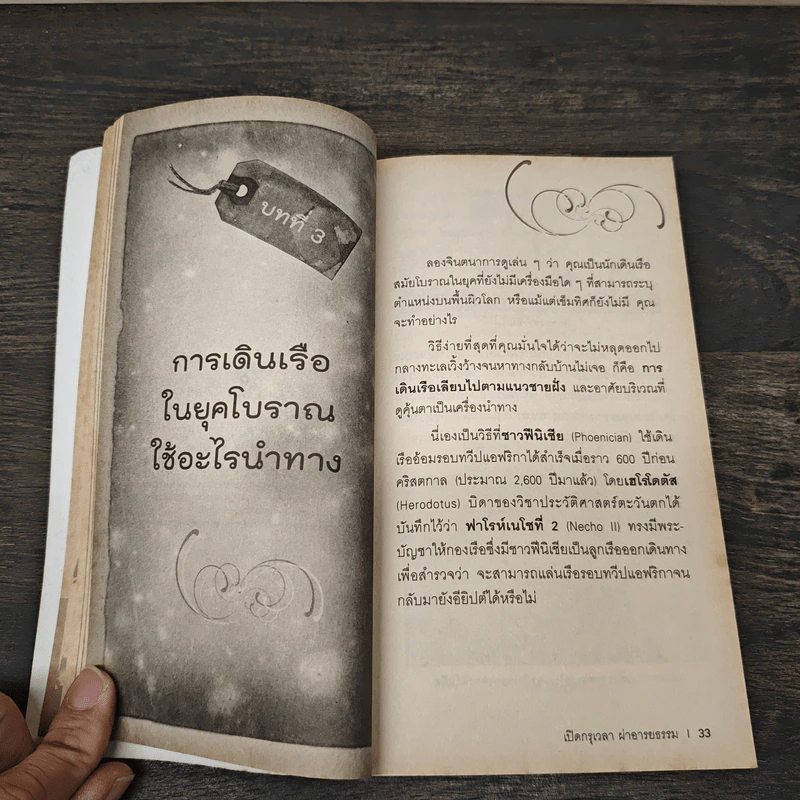 บทที่ 3
การเดินเรือ
ในยุคโบราณ
ใช้อะไรนำทาง
ลองจินตนาการดูเล่น ๆ ว่า คุณเป็นนักเดินเรือ
สมัยโบราณในยุคที่ยังไม่มีเครื่องมือใด ๆ ที่สามารถระบุ
ตำแหน่งบนพื้นผิวโลก หรือแม้แต่เข็มทิศก็ยังไม่มี คุณ
จะทำอย่างไร
วิธีง่ายที่สุดที่คุณมั่นใจได้ว่าจะไม่หลุดออกไป
กลางทะเลเวิ้งว้างจนหาทางกลับบ้านไม่เจอ ก็คือ การ
เดินเรือเลียบไปตามแนวชายฝั่ง และอาศัยบริเวณที่
ดูคุ้นตาเป็นเครื่องนำทาง
นี่เองเป็นวิธีที่ชาวฟีนิเชีย (Phoenician) ใช้เดิน
เรืออ้อมรอบทวีปแอฟริกาได้สำเร็จเมื่อราว 600 ปีก่อน
คริสตกาล (ประมาณ 2,600 ปีมาแล้ว) โดยเฮโรโดตัส
(Herodotus) บิดาของวิชาประวัติศาสตร์ตะวันตกได้
บันทึกไว้ว่า ฟาโรห์เนโชที่ 2 (Necho II) ทรงมีพระ-
บัญชาให้กองเรือซึ่งมีชาวฟีนิเชียเป็นลูกเรือออกเดินทาง
เพื่อสำรวจว่า จะสามารถแล่นเรือรอบทวีปแอฟริกาจน
กลับมายังอียิปต์ได้หรือไม่
เปิดกรุเวลา ผ่าอารยธรรม | 33